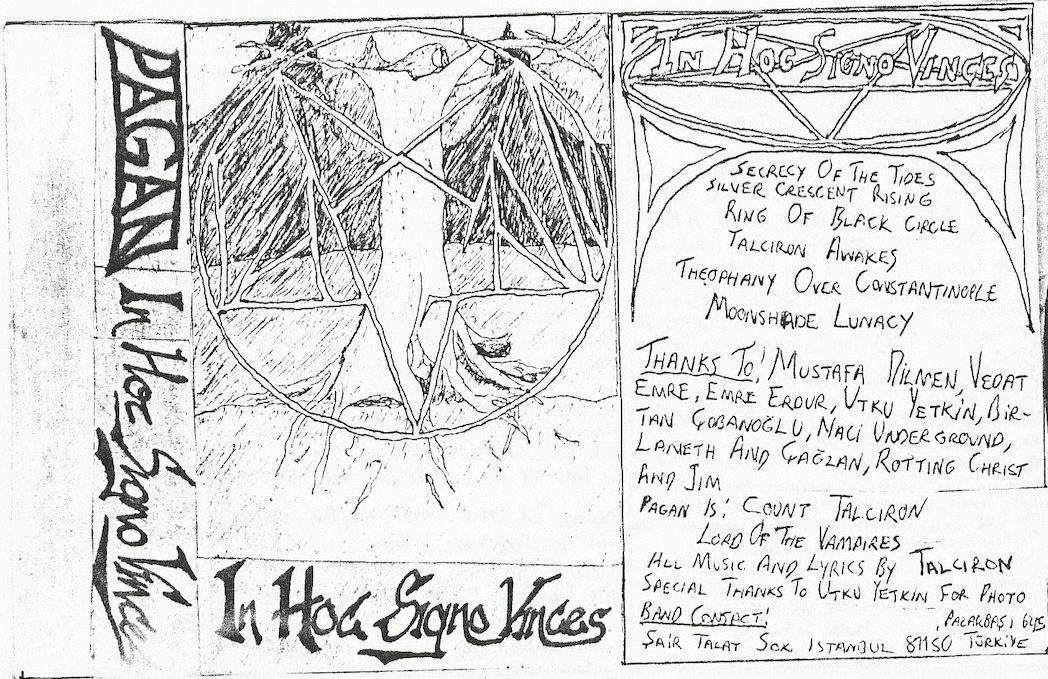 PAGAN In Hoc Signo Vinces
In Hoc Signo Vinces
In Hoc Signo Vinces
Secrecy Of The Tides
Silver Crescent Rising
Ring Of Black Circle
Talciron Awakes
Theophany Over Constantinople
Moonshade Lunacy
Thanks To: Mustafa Dilmen, Vedat
Emre, Emre Erdur, Utku Yetkin, Bir-
tan Çobanoğlu, Naci Underground,
Laneth And Çağlan, Rotting Christ
And Jim
Pagan Is: Count Talciron
Lord Of The Vampires
All Music And Lyrics By Talciron
Special Thanks To Utku Yetkin For Photo
Band Contact:
Şair Talat Sok. Istanbul 81150 Türkiye